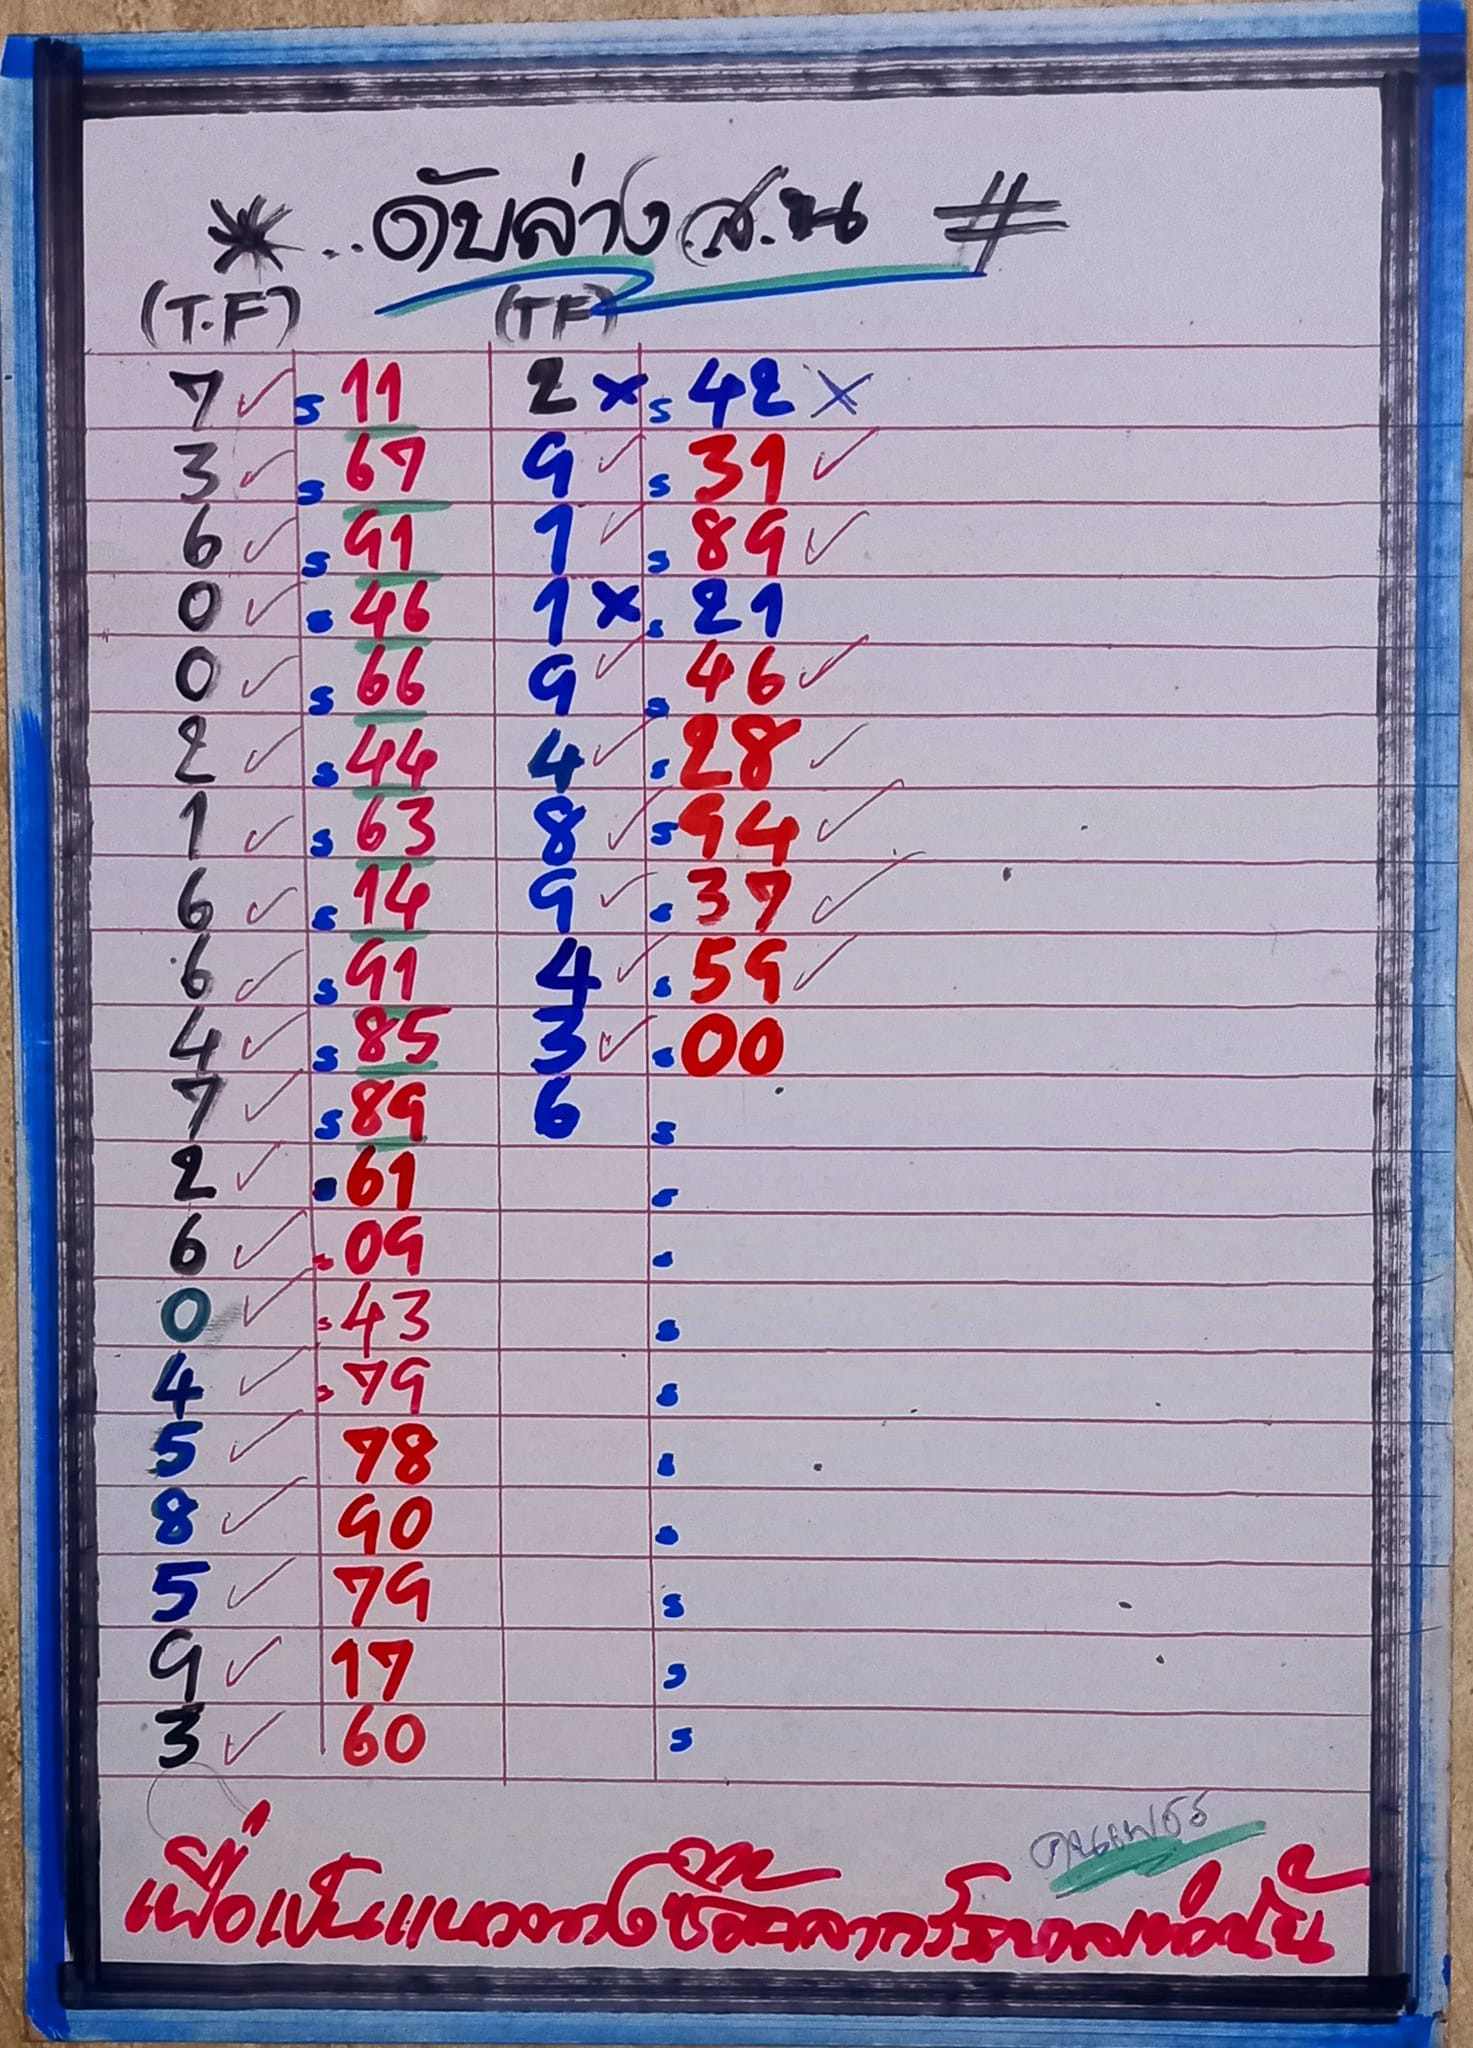 * ..ดับล่าง ส.น #
(T.F) (TF)
7 ✓ s 11 2 × s 42 ×
3 ✓ s 67 9 ✓ s 31 ✓
6 ✓ s 91 1 ✓ s 89 ✓
0 ✓ s 46 1 × s 21
0 ✓ s 66 9 ✓ s 46 ✓
2 ✓ s 44 4 ✓ s 28 ✓
1 ✓ s 63 8 ✓ s 94 ✓
6 ✓ s 14 9 ✓ s 37 ✓
6 ✓ s 91 4 ✓ s 59 ✓
4 ✓ s 85 3 ✓ s 00
7 ✓ s 89 6 s
2 ✓ s 61 s
6 ✓ s 09 s
0 ✓ s 43 s
4 ✓ s 79 s
5 ✓ 78 s
8 ✓ 90 s
5 ✓ 79 s
9 ✓ 17 s
3 ✓ 60 s
เพื่อเป็นแนวทางซื้อสลากรัฐบาลเท่านั้น